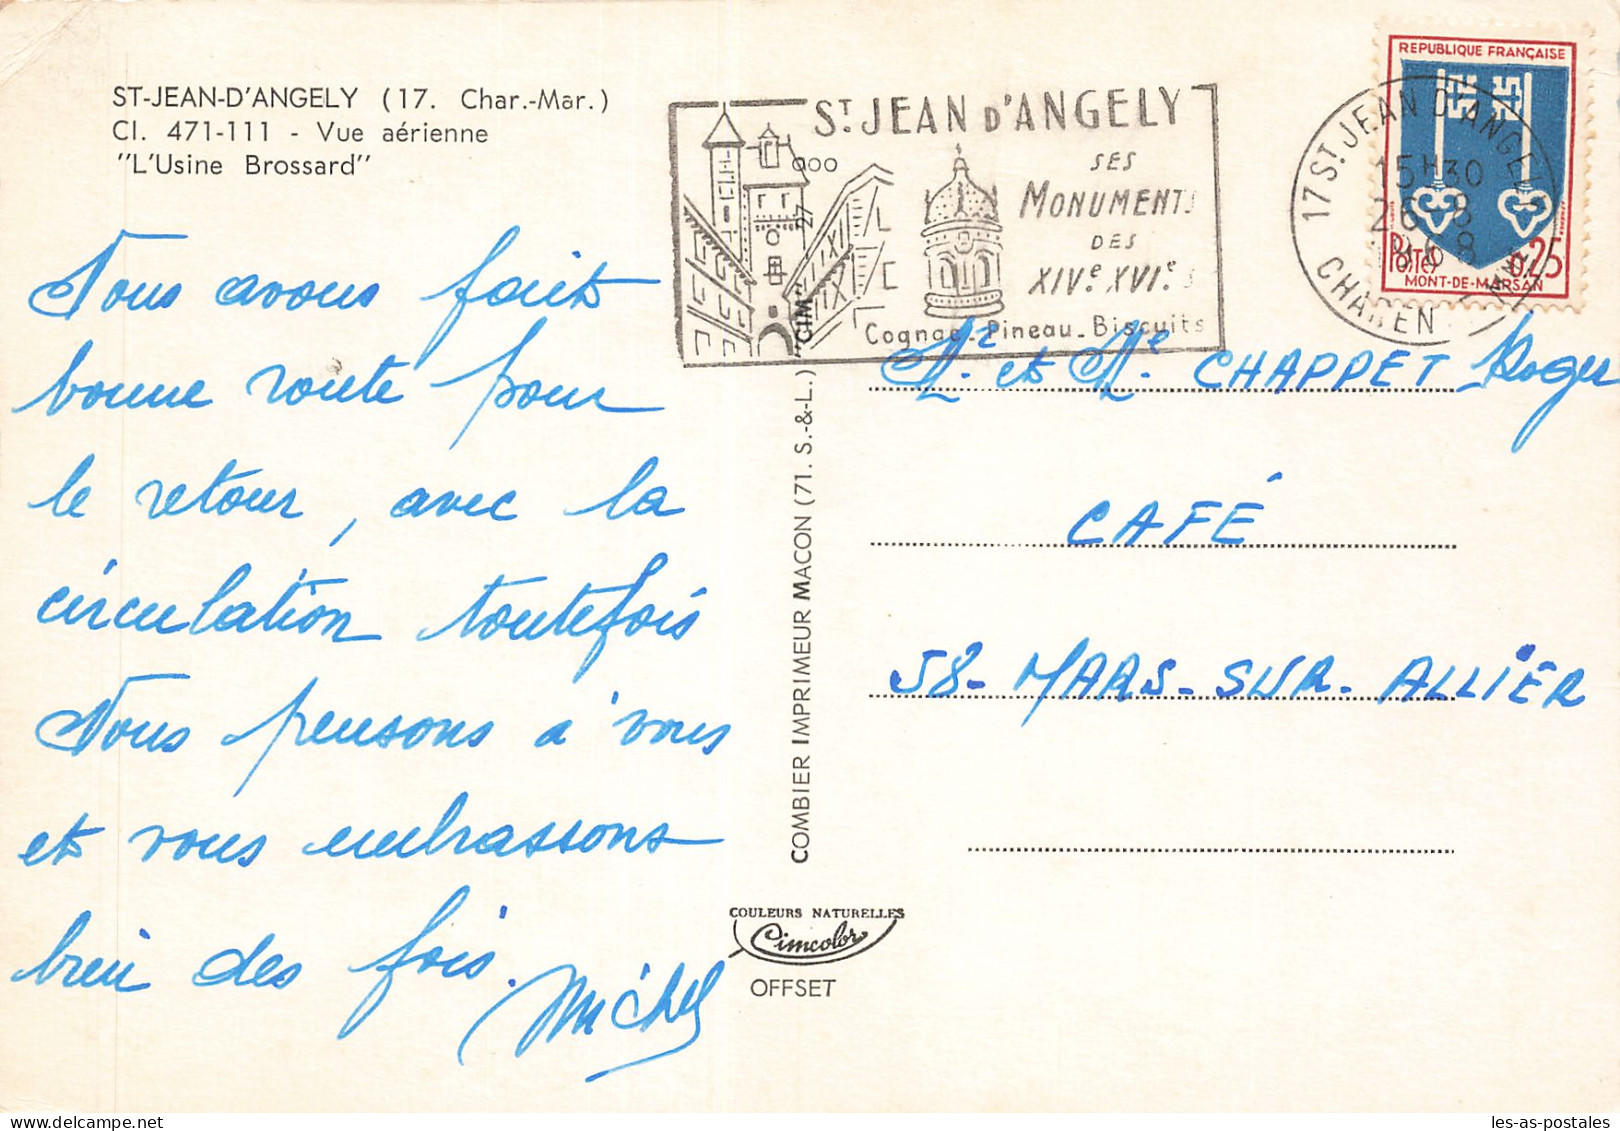 ST-JEAN-D'ANGELY (17. Char.-Mar.)
Cl. 471-111 - Vue aérienne
"L'Usine Brossard"
Nous avons fait
bonne route pour
le retour, avec la
circulation toutefois
Nous pensons à vous
et vous embrassons
bien des fois.
Michel
COMBIER IMPRIMEUR MACON (71. S.-&-L.) "CIM"
COULEURS NATURELLES
Cimcolor
OFFSET
ST JEAN D'ANGELY
SES
MONUMENTS
DES
XIVe XVIe S
Cognac_Pineau_Biscuits
17 ST JEAN D'ANGELY
15H30
26-8
1968
CHAREN
REPUBLIQUE FRANÇAISE
Postes
0,25
MONT-DE-MARSAN
Mr et Me CHAPPET Roger
CAFÉ
58- MARS-SUR-ALLIER
les-as-postales